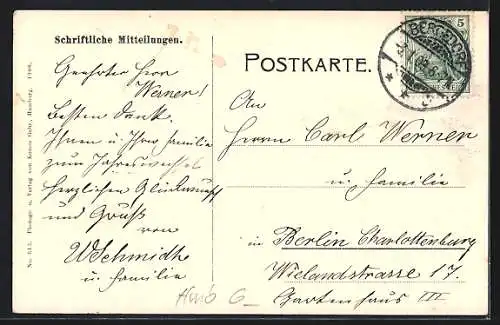 Schriftliche Mitteilungen.
POSTKARTE.
BERGEDORF
5
Geehrter Herr
Werner!
Besten Dank.
Ihnen u. Ihrer Familie
zum Jahreswechsel
herzlichen Glückwunsch
und Gruß
von
WSchmidt
u. Familie
An
Herrn Carl Werner
u. Familie
in Berlin Charlottenburg
Wielandstrasse 17.
Gartenhaus III
No. 613. Photogr. u. Verlag von Hamburg.